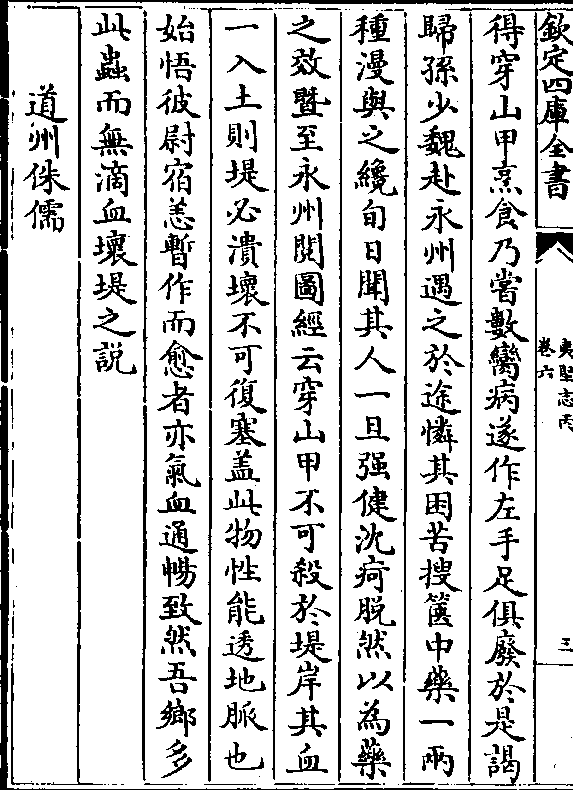 欽定四庫全書
夷堅志丙
卷六
三
得穿山甲烹食乃嘗數臠病遂作左手足俱廢於是謁
歸孫少魏赴永州遇之於途憐其困苦搜篋中藥一兩
種漫與之纔旬日聞其人一旦强健沈疴脱然以為藥
之效暨至永州閲圖經云穿山甲不可殺於堤岸其血
一入土則堤必潰壞不可復塞盖此物性能透地脈也
始悟彼尉宿恙暫作而愈者亦氣血通暢致然吾鄉多
此蟲而無滴血壞堤之説
道州侏儒